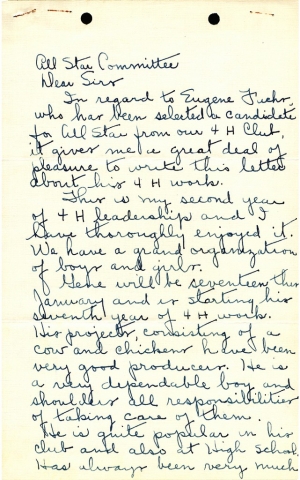 All Star Committee
Dear Sirs
In regard to Eugene Fuchs,
who has been selected a candidate
for All Star from our 4H Club,
it gives me a great deal of
pleasure to write this letter
about his 4H work.
This is my second year
of 4H leadership and I
have thoroughly enjoyed it.
We have a grand organization
of boys and girls.
Gene will be seventeen this
January and is starting his
seventh year of 4H work.
His projects, consisting of a
cow and chickens have been
very good producers. He is
a very dependable boy and
shoulders all responsibilities
of taking care of them.
He is quite popular in his
club and also at High School.
Has always been very much